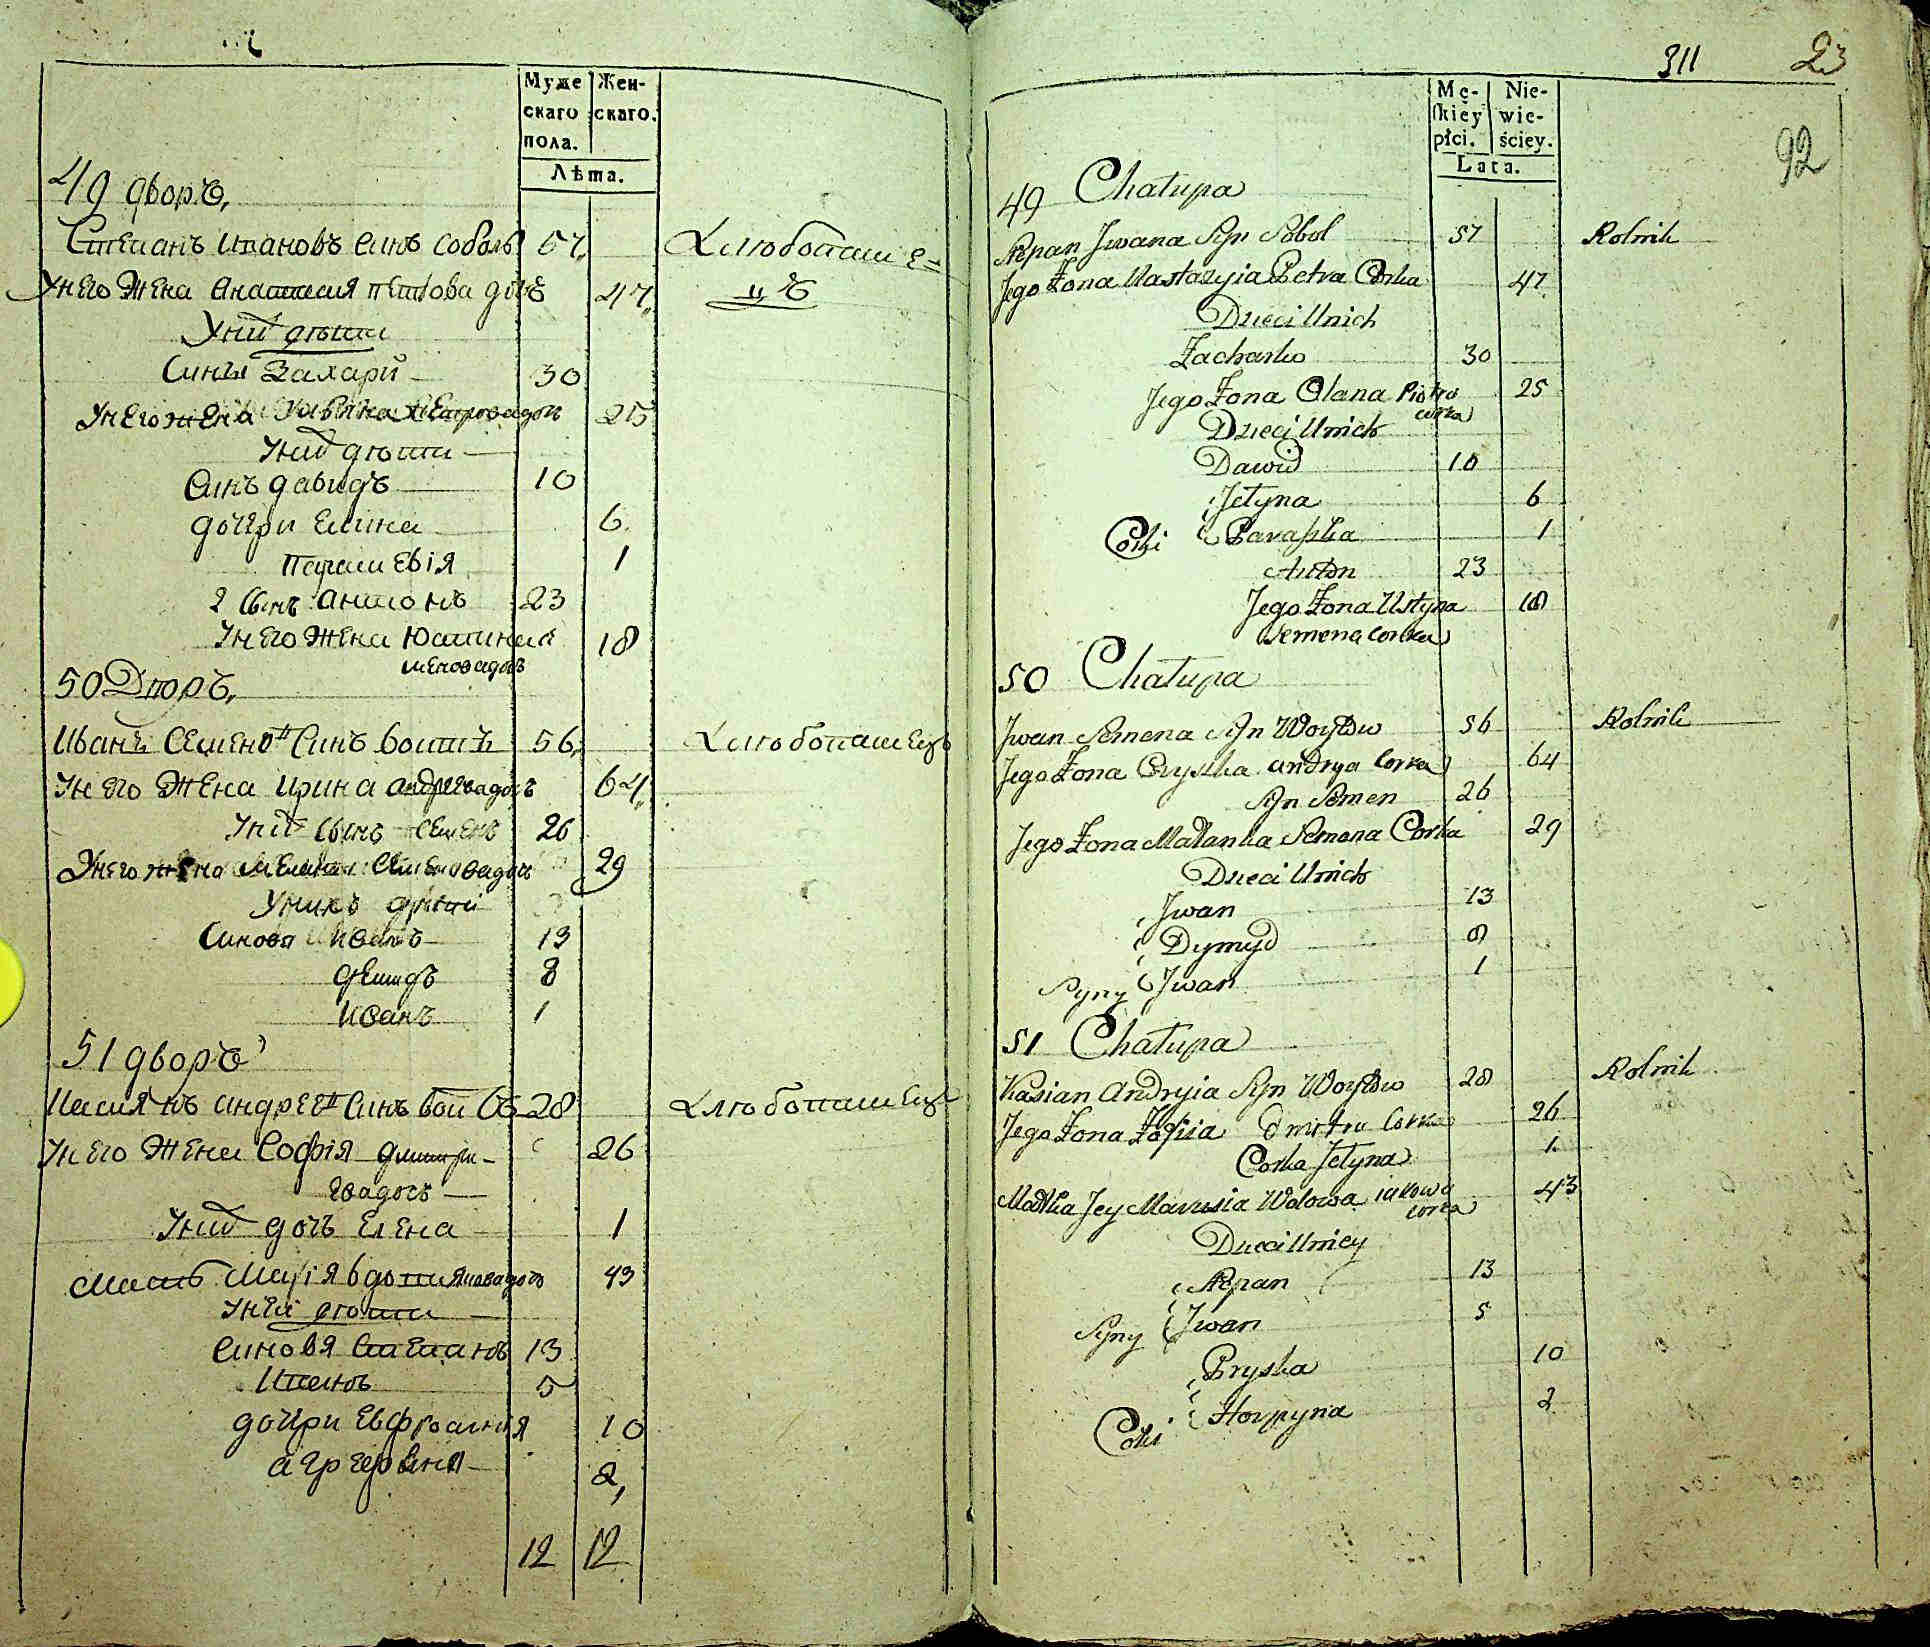 Муже
скаго
пола.
Жен-
скаго.
Лѣта.
49 дворъ,
Степанъ Ивановъ синъ соболь 57,
Унего Жена Анастасия петрова дочъ 47,
Хлюбопаше=
цъ
Уних дѣти
Синъ Захарий 30
Унего жена Петровадоч 25
Уних дѣти
Синъ давидъ 10
дочери Елина 6
Параскевія 1
2 Сынъ антонъ 23
Унего Жена Юстина се
меновадочъ 18
50 Дворъ,
Иванъ Семенов Синъ Войтъ 56,
Хлюбопашецъ
Унего Жена Ирина андреевадочъ 64,
Уних Сынъ Семенъ 26
Унего жена Мелания Семеновадочъ 29
Унихъ дѣти
Синовя Иванъ 13
демидъ 8
Иванъ 1
51 дворъ
Касиянъ андреев Синъ Вой 28
Хлюбопашецъ
Унего Жена Софія дмитри-
евадочъ 26
Уних дочъ Елена 1
Мать Марія вдо 43
Унеи дѣти
Синовя Степанъ 13
Иванъ 5
дочери Евфросиния 10
агрепина 2,
12 12
311
23
92
Mę-
skiey
płci.
Nie-
wie-
ściey.
Lata.
49 Chałupa
Stepan Jwana Syn Sobol 57 Rolnik
Jego Żona Nastazyia Petra Corka 47
Dzieci Unich
Zacharko 30
Jego Żona Olana Piotra
corka 25
Dzieci Unich
Dawid 10
Jełyna 6
Corki Paraska 1
Anton 23
Jego Żona Ustyna 18
Semena Corka
50 Chałupa
Jwan Semena Syn Woytow 56 Rolnik
Jego Żona Oryszka andrya Corka 64
Syn Semen 26
Jego Żona Małanka Semena Corka 29
Dzieci Unich
Jwan 13
Dymyd 8
Syny Jwan 1
51 Chałupa
Kasian Andryia Syn Woytow 28 Rolnik
Jego Żona Zofiia Dmitra Corka 26
Corka Jełyna 1
Matka Jey Marusia Wdowa iakowa
corka 43
Dzieci Uniey
Stepan 13
Syny Jwan 5
Pryska 10
Corki Horpyna 2